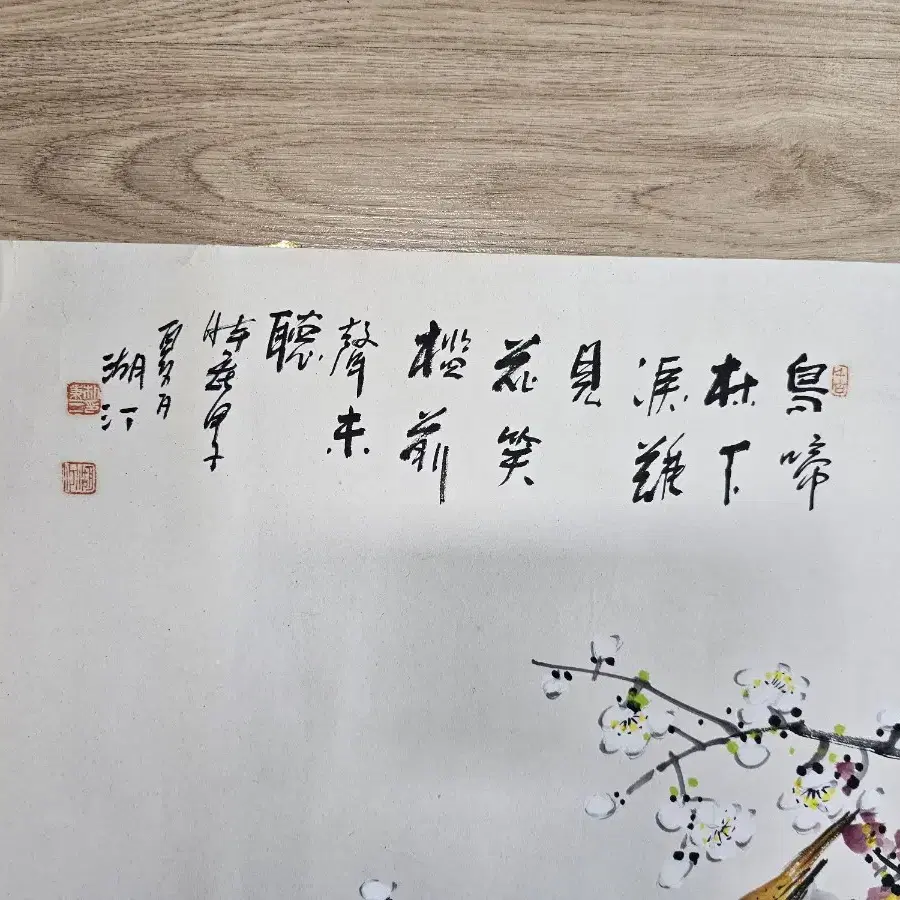 鳥啼
林下
淚難
見
花笑
檻前
聲未
聽
時在甲子
夏月
湖江